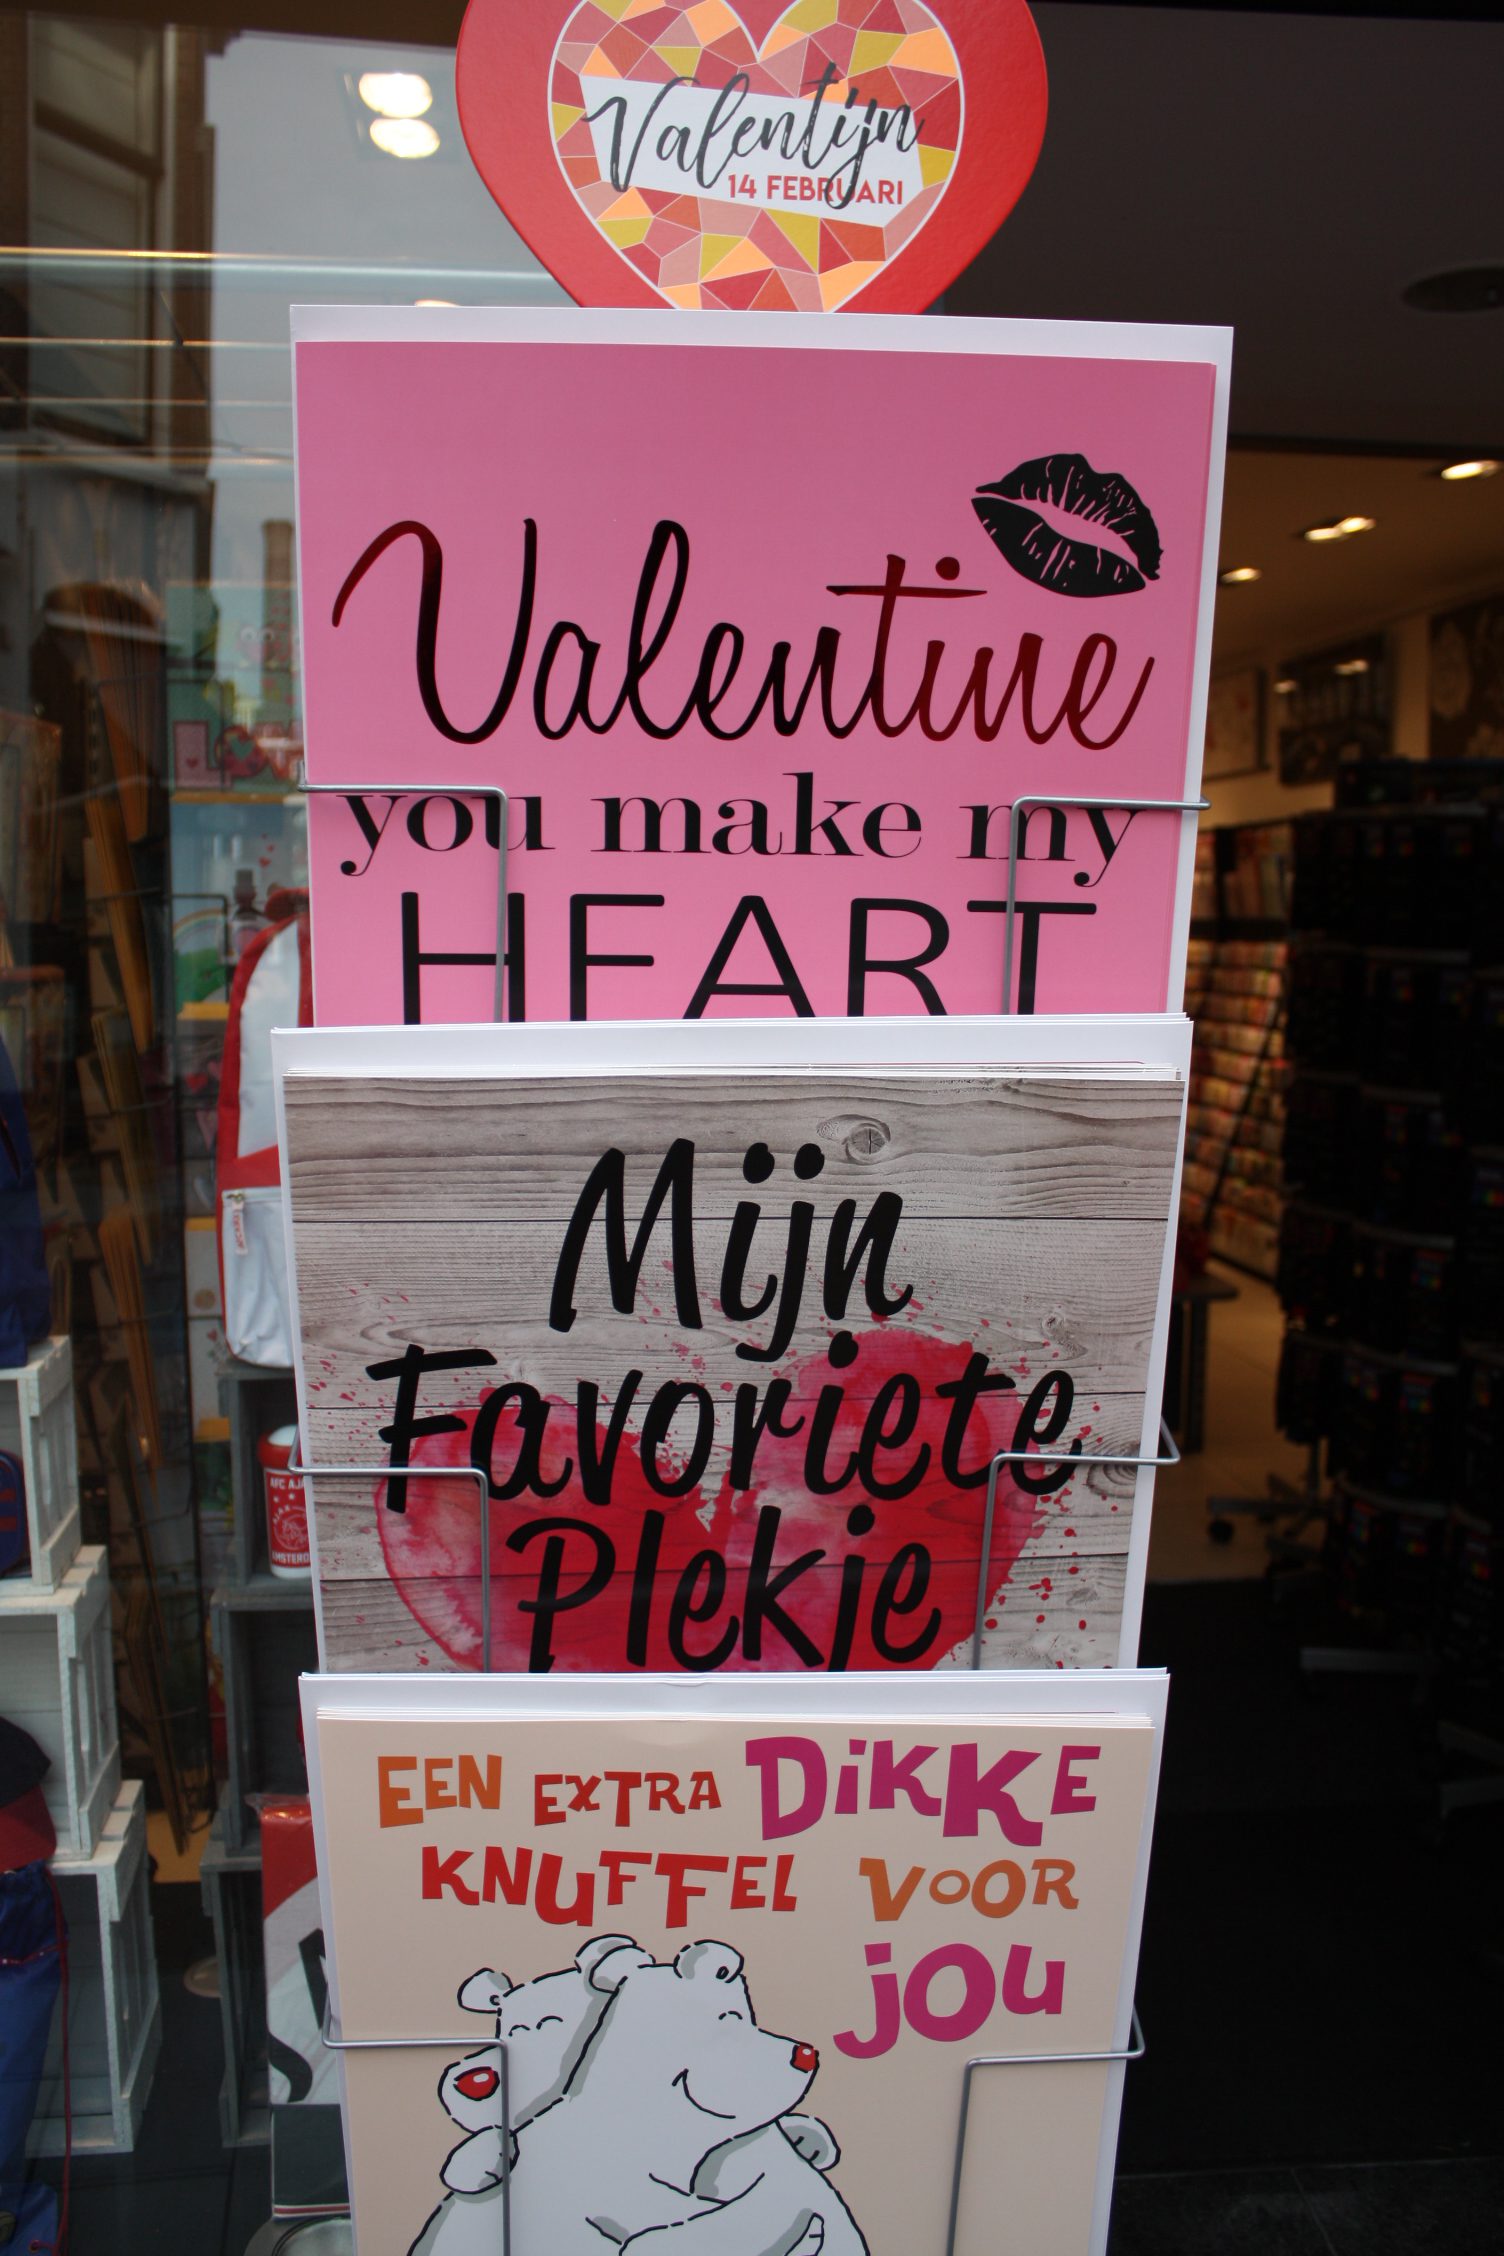 Valentijn
14 FEBRUARI
Valentine
you make my
HEART
Mijn
Favoriete
Plekje
EEN EXTRA DIKKE
KNUFFEL VOOR
JOU
AFC AJA
AMSTERD